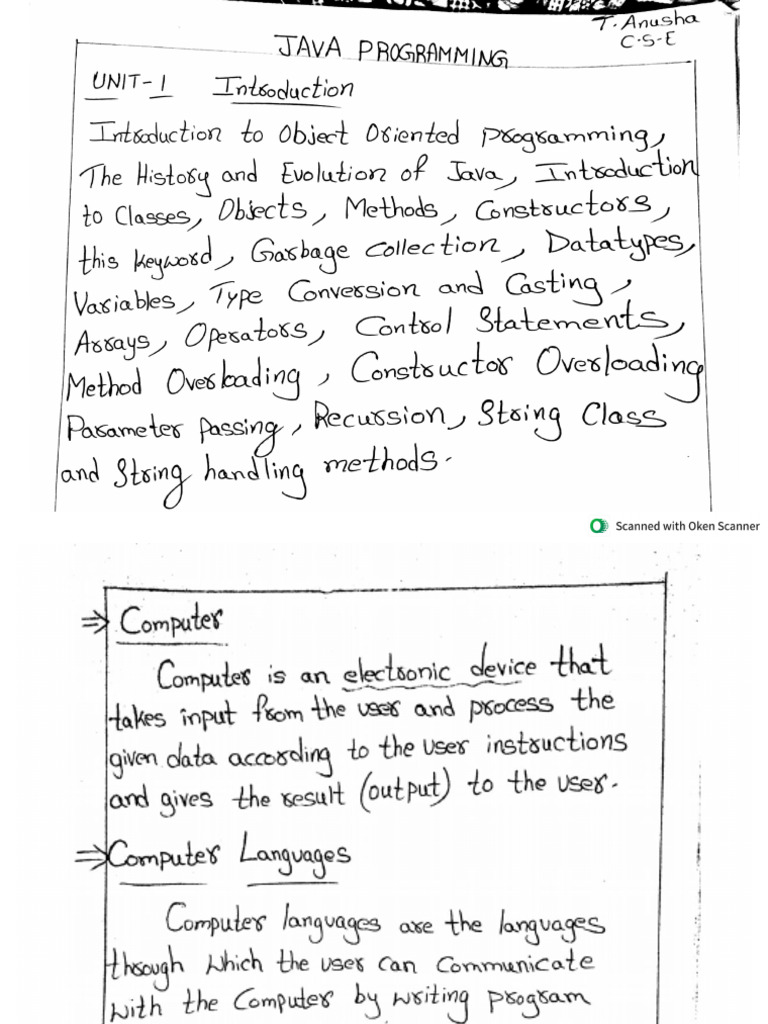 T. Anusha
C-S-E
JAVA PROGRAMMING
UNIT-1 Introduction
Introduction to Object Oriented programming,
The History and Evolution of Java, Introduction
to Classes, Objects, Methods, Constructors,
this keyword, Garbage collection, Datatypes,
Variables, Type Conversion and Casting,
Arrays, Operators, Control Statements,
Method Overloading, Constructor Overloading
Parameter passing, Recursion, String Class
and String handling methods.
Scanned with Oken Scanner
⇒ Computer
Computer is an electronic device that
takes input from the user and process the
given data according to the user instructions
and gives the result (output) to the user.
⇒ Computer Languages
Computer languages are the languages
through which the user can communicate
with the Computer by writing program